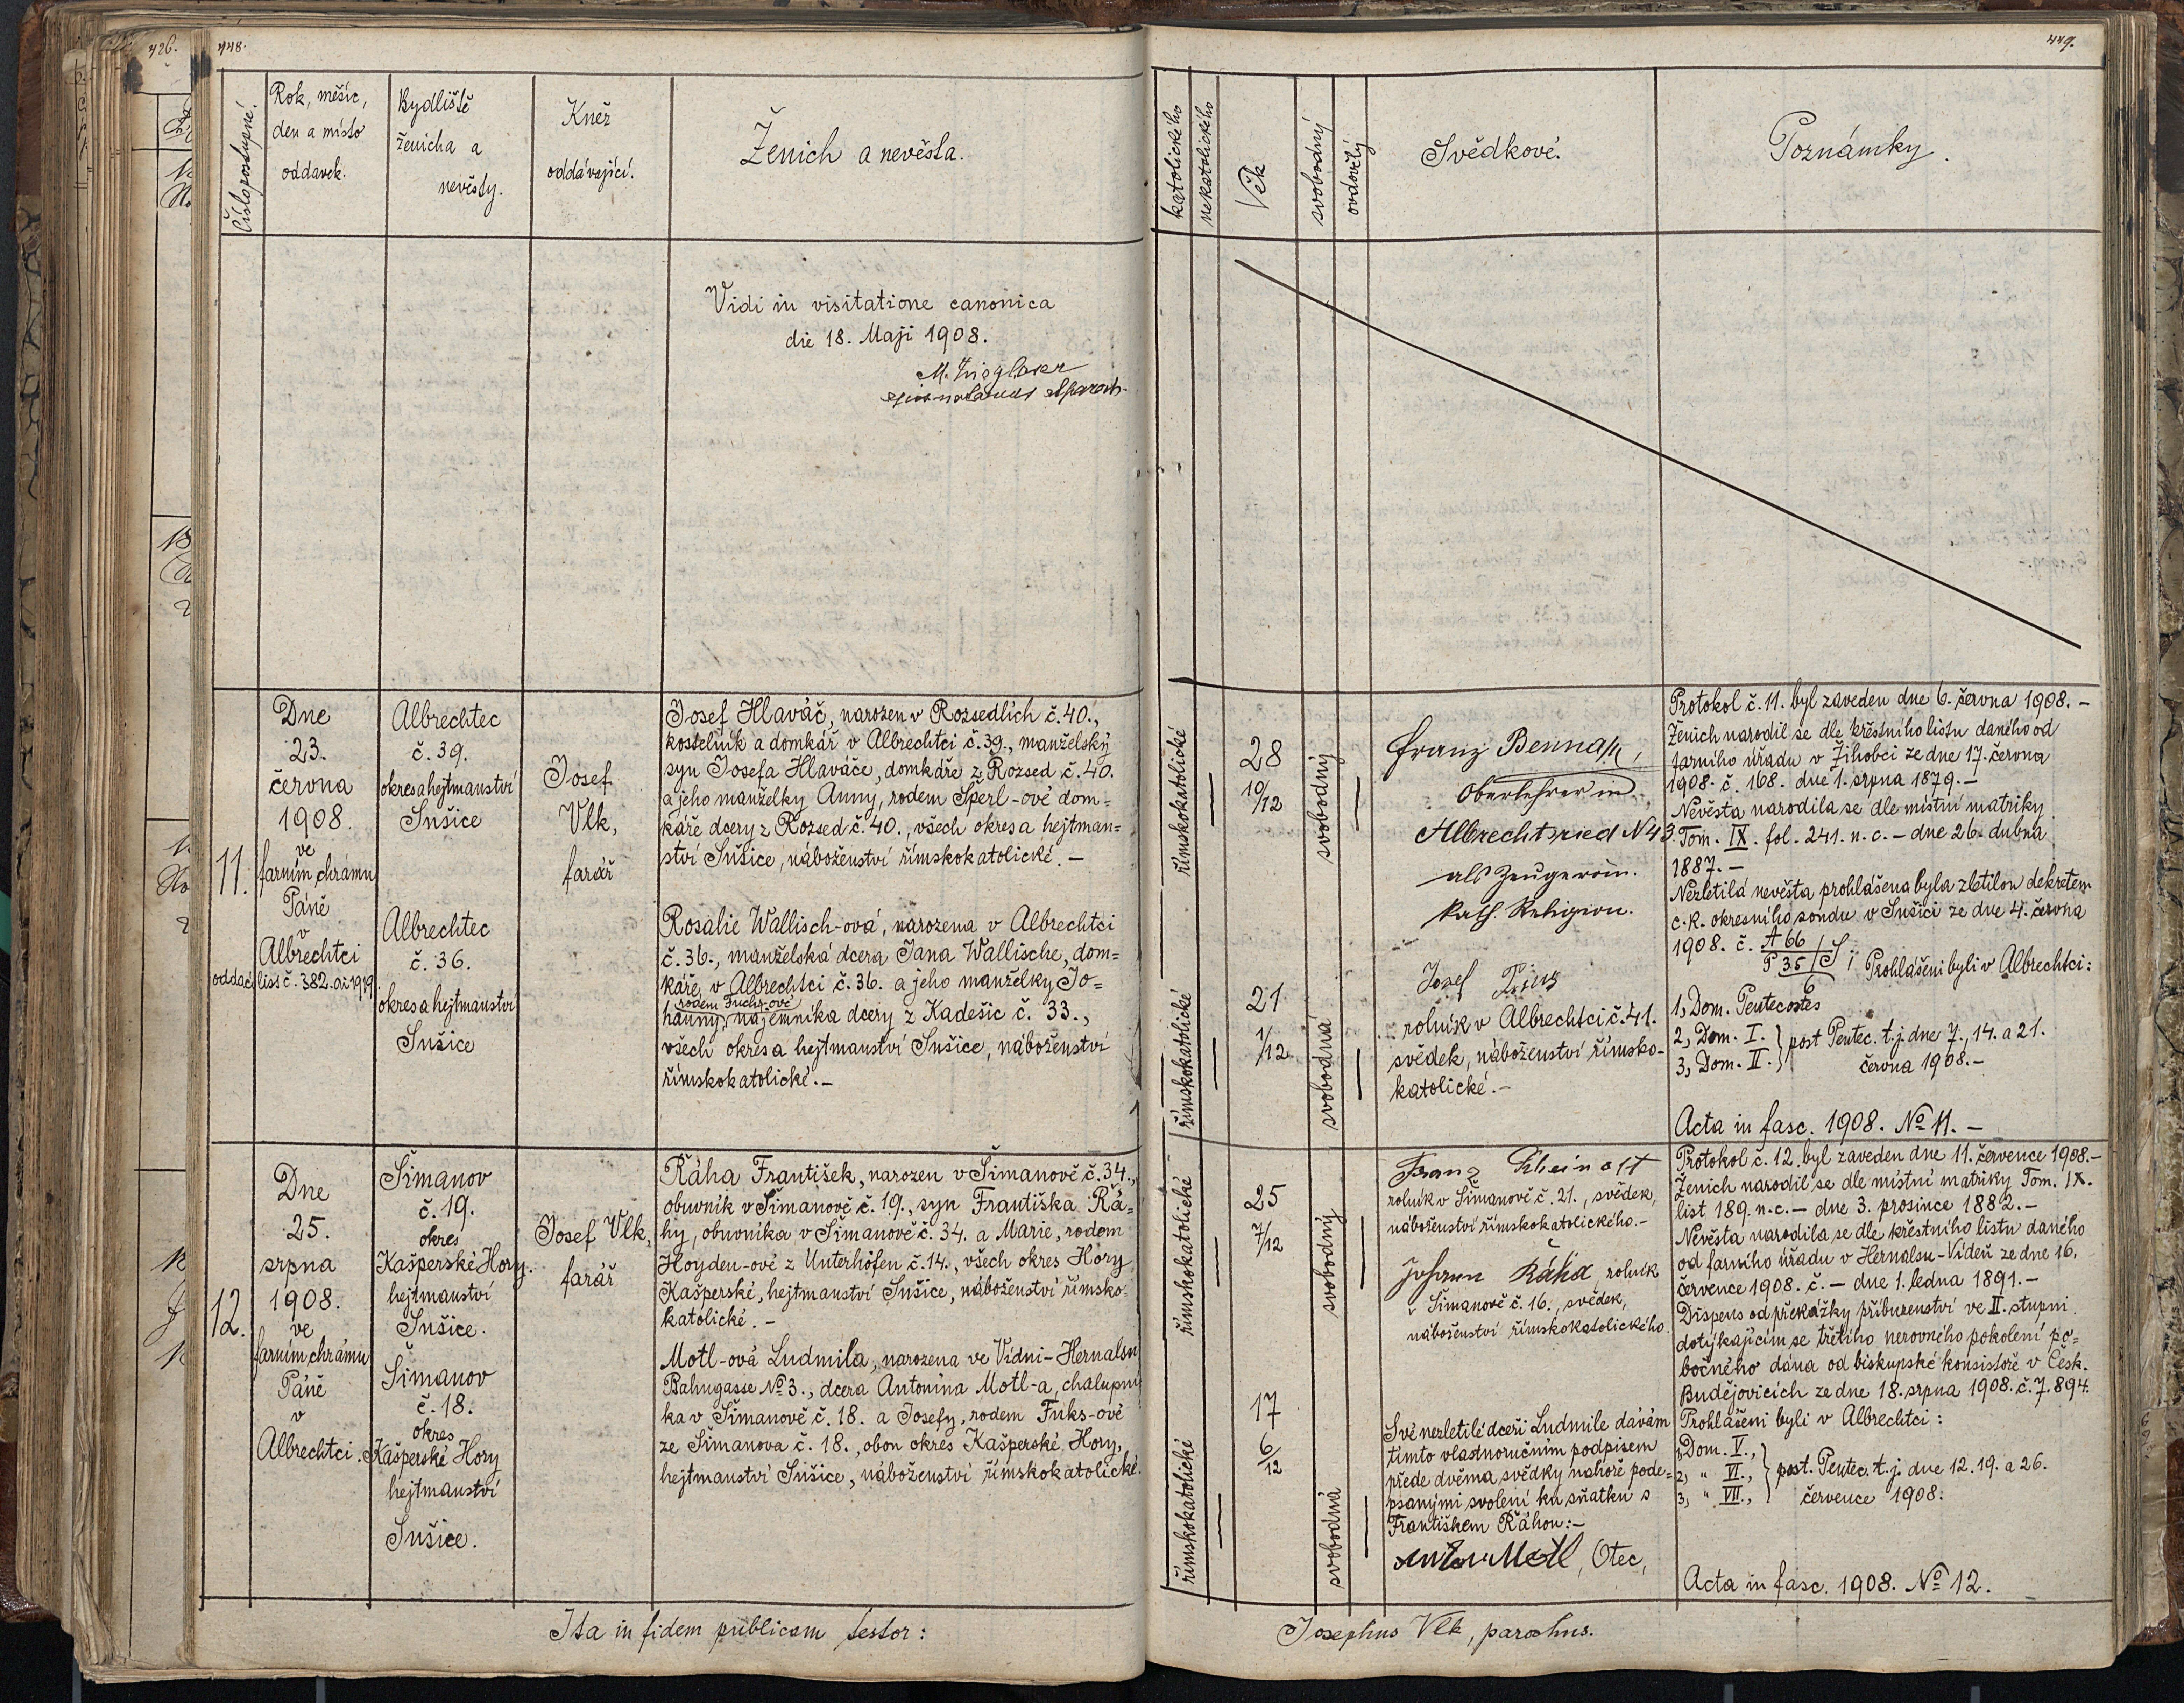 426.
448.
449.
Číslo postupné.
Rok, měsíc,
den a místo
oddavek.
Bydliště
ženicha a
nevěsty.
Kněz
oddávající.
Ženich a nevěsta.
katolického
nekatolického
Věk
svobodný
ovdovělý
Svědkové.
Poznámky.
Vidi in visitatione canonica
die 18. Maji 1908.
11.
Dne
23.
června
1908.
ve
farním chrámu
Páně
v
Albrechtci
oddac. list č. 382. ai 1919
Albrechtec
č. 39.
okres a hejtmanství
Sušice
Albrechtec
č. 36.
okres a hejtmanství
Sušice
Josef
Vlk,
farář
Josef Hlaváč, narozen v Rozsedlích č. 40.,
kostelník a domkář v Albrechtci č. 39., manželský
syn Josefa Hlaváče, domkáře z Rozsed č. 40.
a jeho manželky Anny, rodem Šperl-ové dom=
káře dcery z Rozsed č. 40., všech okres a hejtman=
ství Sušice, náboženství římskokatolické. –
Rosalie Wallisch-ová, narozena v Albrechtci
č. 36., manželská dcera Jana Wallische, dom=
káře v Albrechtci č. 36. a jeho manželky Jo=
rodem Fuchs-ové
hanny, nájemníka dcery z Kadešic č. 33.,
všech okres a hejtmanství Sušice, náboženství
římskokatolické. –
římskokatolické
—
28
10/12
svobodný
—
římskokatolické
—
21
1/12
svobodná
—
Franz
Oberlehrer in
Albrechtsried N 43.
als Zeuge röm.
kath. Religion.
Josef
rolník v Albrechtci č. 41.
svědek, náboženství římsko-
katolické. –
Protokol č. 11. byl zaveden dne 6. června 1908. –
Ženich narodil se dle křestního listu daného od
farního úřadu v Žihobci ze dne 17. června
1908. č. 168. dne 1. srpna 1879. –
Nevěsta narodila se dle místní matriky
Tom. IX. fol. 241. n. c. – dne 26. dubna
1887. –
Nezletilá nevěsta prohlášena byla zletilou dekretem
c. k. okresního soudu v Sušici ze dne 4. června
1908. č. A 66
P 35/S; Prohlášeni byli v Albrechtci:
6
1, Dom. Pentecostes
2, Dom. I. } post Pentec. t. j. dne 7., 14. a 21.
3, Dom. II. } června 1908. –
Acta in fasc. 1908. No 11. –
12.
Dne
25.
srpna
1908.
ve
farním chrámu
Páně
v
Albrechtci.
Šimanov
č. 19.
okres
Kašperské Hory.
hejtmanství
Sušice.
Šimanov
č. 18.
okres
Kašperské Hory
hejtmanství
Sušice.
Josef Vlk,
farář
Ráha František, narozen v Šimanově č. 34.,
obuvník v Šimanově č. 19., syn Františka Rá=
hy, obuvníka v Šimanově č. 34. a Marie, rodem
Hoyden-ové z Unterhöfen č. 14., všech okres Hory
Kašperské, hejtmanství Sušice, náboženství římsko-
katolické. –
Motl-ová Ludmila, narozena ve Vídni-Hernalsu
Bahngasse No 3., dcera Antonína Motl-a, chalupní
ka v Šimanově č. 18. a Josefy, rodem Fuks-ové
ze Šimanova č. 18., obou okres Kašperské Hory,
hejtmanství Sušice, náboženství římskokatolické.
římskokatolické
—
25
7/12
svobodný
—
římskokatolické
—
17
6/12
svobodná
—
Franz
rolník v Šimanově č. 21., svědek,
náboženství římskokatolického. –
Johann Ráha rolník
v Šimanově č. 16., svědek,
náboženství římskokatolického.
Své nezletilé dceři Ludmile dávám
tímto vlastnoručním podpisem
přede dvěma svědky nahoře pode=
psanými svolení ku sňatku s
Františkem Ráhou: –
Anton Motl, Otec,
Protokol č. 12. byl zaveden dne 11. července 1908. –
Ženich narodil se dle místní matriky Tom. IX.
list 189. n. c. – dne 3. prosince 1882. –
Nevěsta narodila se dle křestního listu daného
od farního úřadu v Hernalsu-Vídeň ze dne 16.
července 1908. č. – dne 1. ledna 1891. –
Dispens od překážky příbuzenství ve II. stupni
dotýkajícím se třetího nerovného pokolení po=
bočného dána od biskupské konsistoře v Česk.
Budějovicích ze dne 18. srpna 1908. č. 7.894.
Prohlášeni byli v Albrechtci:
1, Dom. V.,
2, " VI., } post. Pentec. t. j. dne 12. 19. a 26.
3, " VII., července 1908.
Acta in fasc. 1908. No 12.
Ita in fidem publicam testor:
Josephus Vlk, parochus.